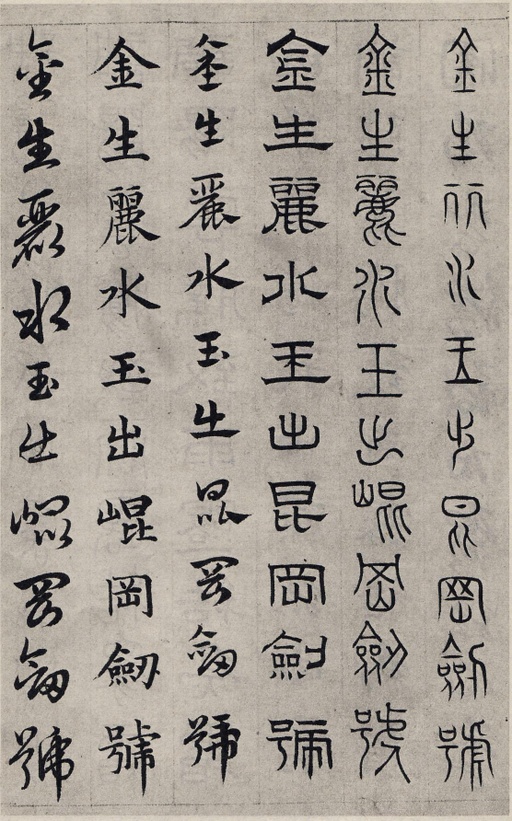 金生丽水玉出昆岡劍號
金生麗水玉出崐岡劒號
金生麗水玉出昆岡劍號
金生麗水玉出昆岡劒號
金生麗水玉出崐岡劒號
金生麗水玉出崐岡劒號